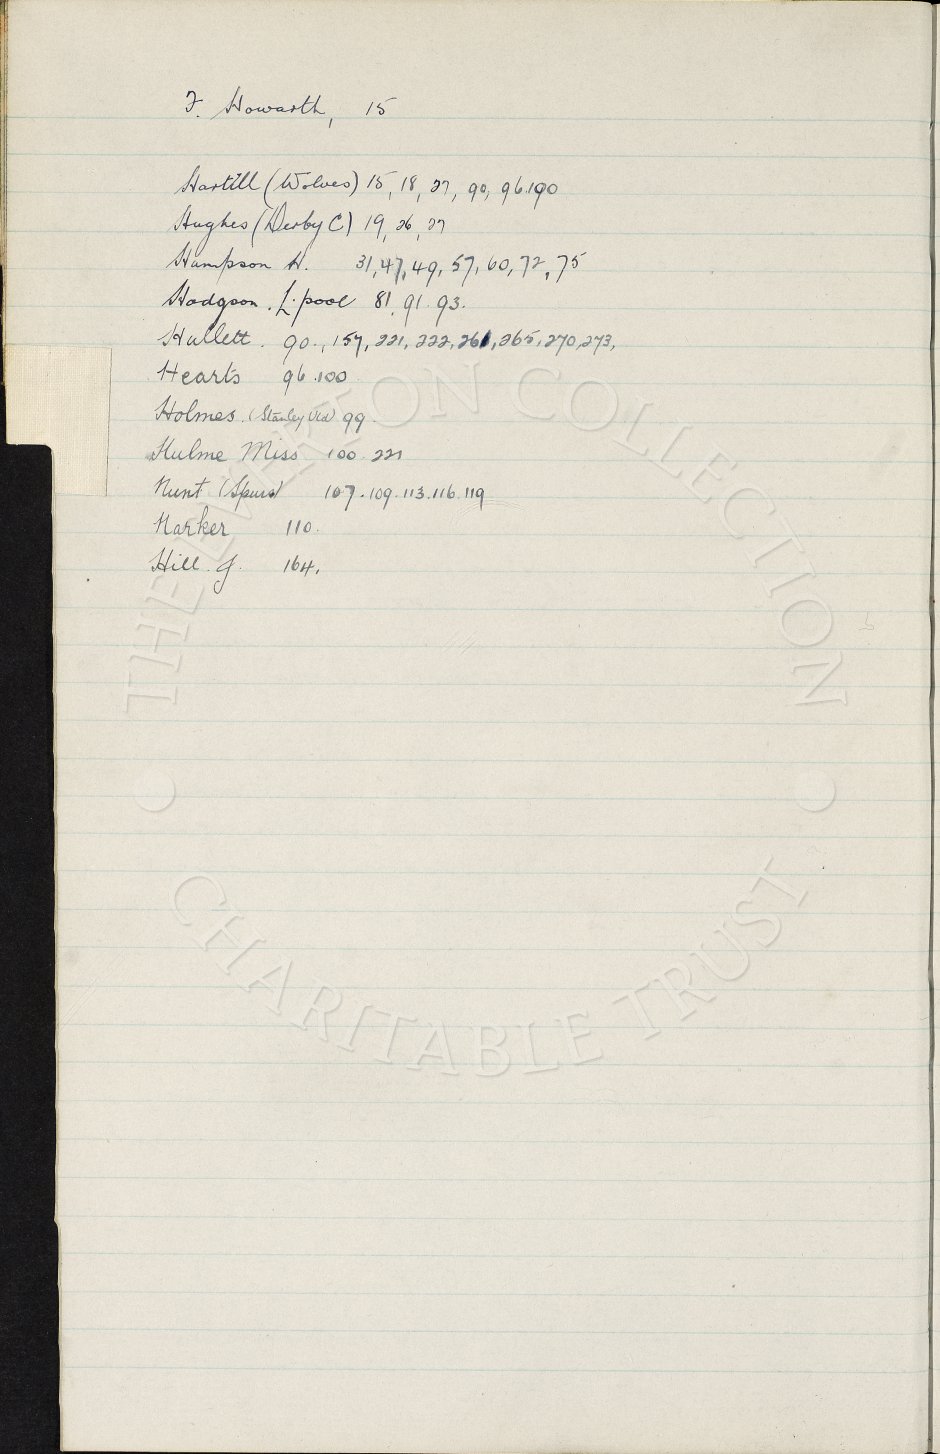 F. Howarth, 15
Hartill (Wolves) 15, 18, 27, 90, 96.190
Hughes (Derby C) 19, 26, 27
Hampson H. 31, 47, 49, 57, 60, 72, 75
Hodgson. L.pool 81, 91. 93.
Hullett. 90., 157, 221, 222, 261, 265, 270, 273,
Hearts 96.100
Holmes. (Stanley Utd) 99.
Hulme Miss 100.221
Hunt (Spurs) 107.109.113.116.119
Harker 110.
Hill. J. 164.
THE EVERTON COLLECTION
CHARITABLE TRUST